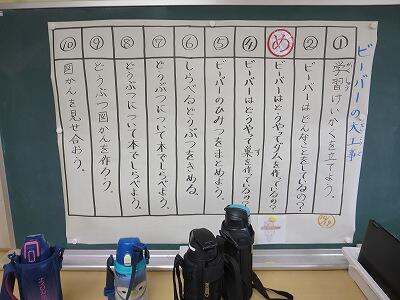 ビーバーの大工事
①学習けいかくを立てよう。
②ビーバーはどんなことをしているの?
めビーバーはどうやってダムを作っているの?
④ビーバーはどうやって巣を作っているの?
⑤ビーバーのひみつをまとめよう。
⑥しらべるどうぶつをきめる。
⑦どうぶつについて本でしらべよう。
⑧どうぶつについて本でしらべよう。
⑨どうぶつ図かんを作ろう。
⑩図かんを見せ合おう。